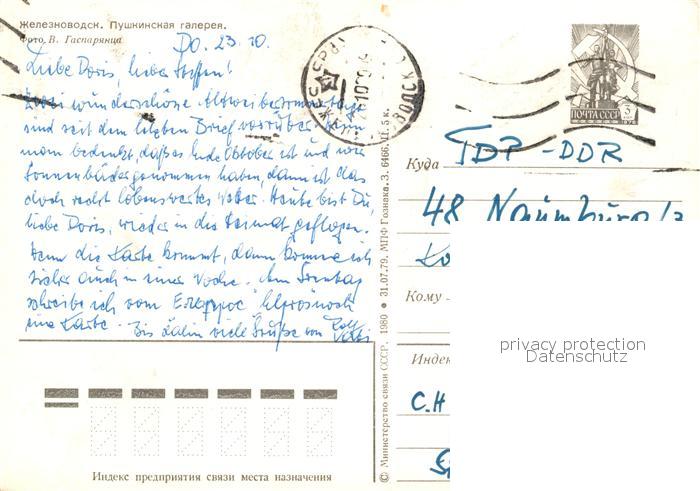 Железноводск. Пушкинская галерея.
Фото В. Гаспарянца
Do. 23.10.
Liebe Doris, lieber Steffen!
Zwei wunderschöne Altweibersommertage
sind seit dem letzten Brief vorüber. Wenn
man bedenkt, daß es Ende Oktober ist und wir
Sonnenbäder genommen haben, dann ist das
doch recht lobenswertes Wetter. Heute bist Du,
liebe Doris, wieder in die Heimat geflogen.
Wenn die Karte kommt, dann komme ich
sicher auch in einer Woche. Am Sonntag
schreibe ich vom
eine Karte. Bis dahin viele Grüße von
ПОЧТА СССР
Куда ГДР - DDR
48 Naumburg/S
Кому
Индекс
С.Н
Индекс предприятия связи места назначения
© Министерство связи СССР. 1980 ● 31.07.79. МПФ Гознака. З. 6466. Ц. 5 к.
privacy protection
Datenschutz